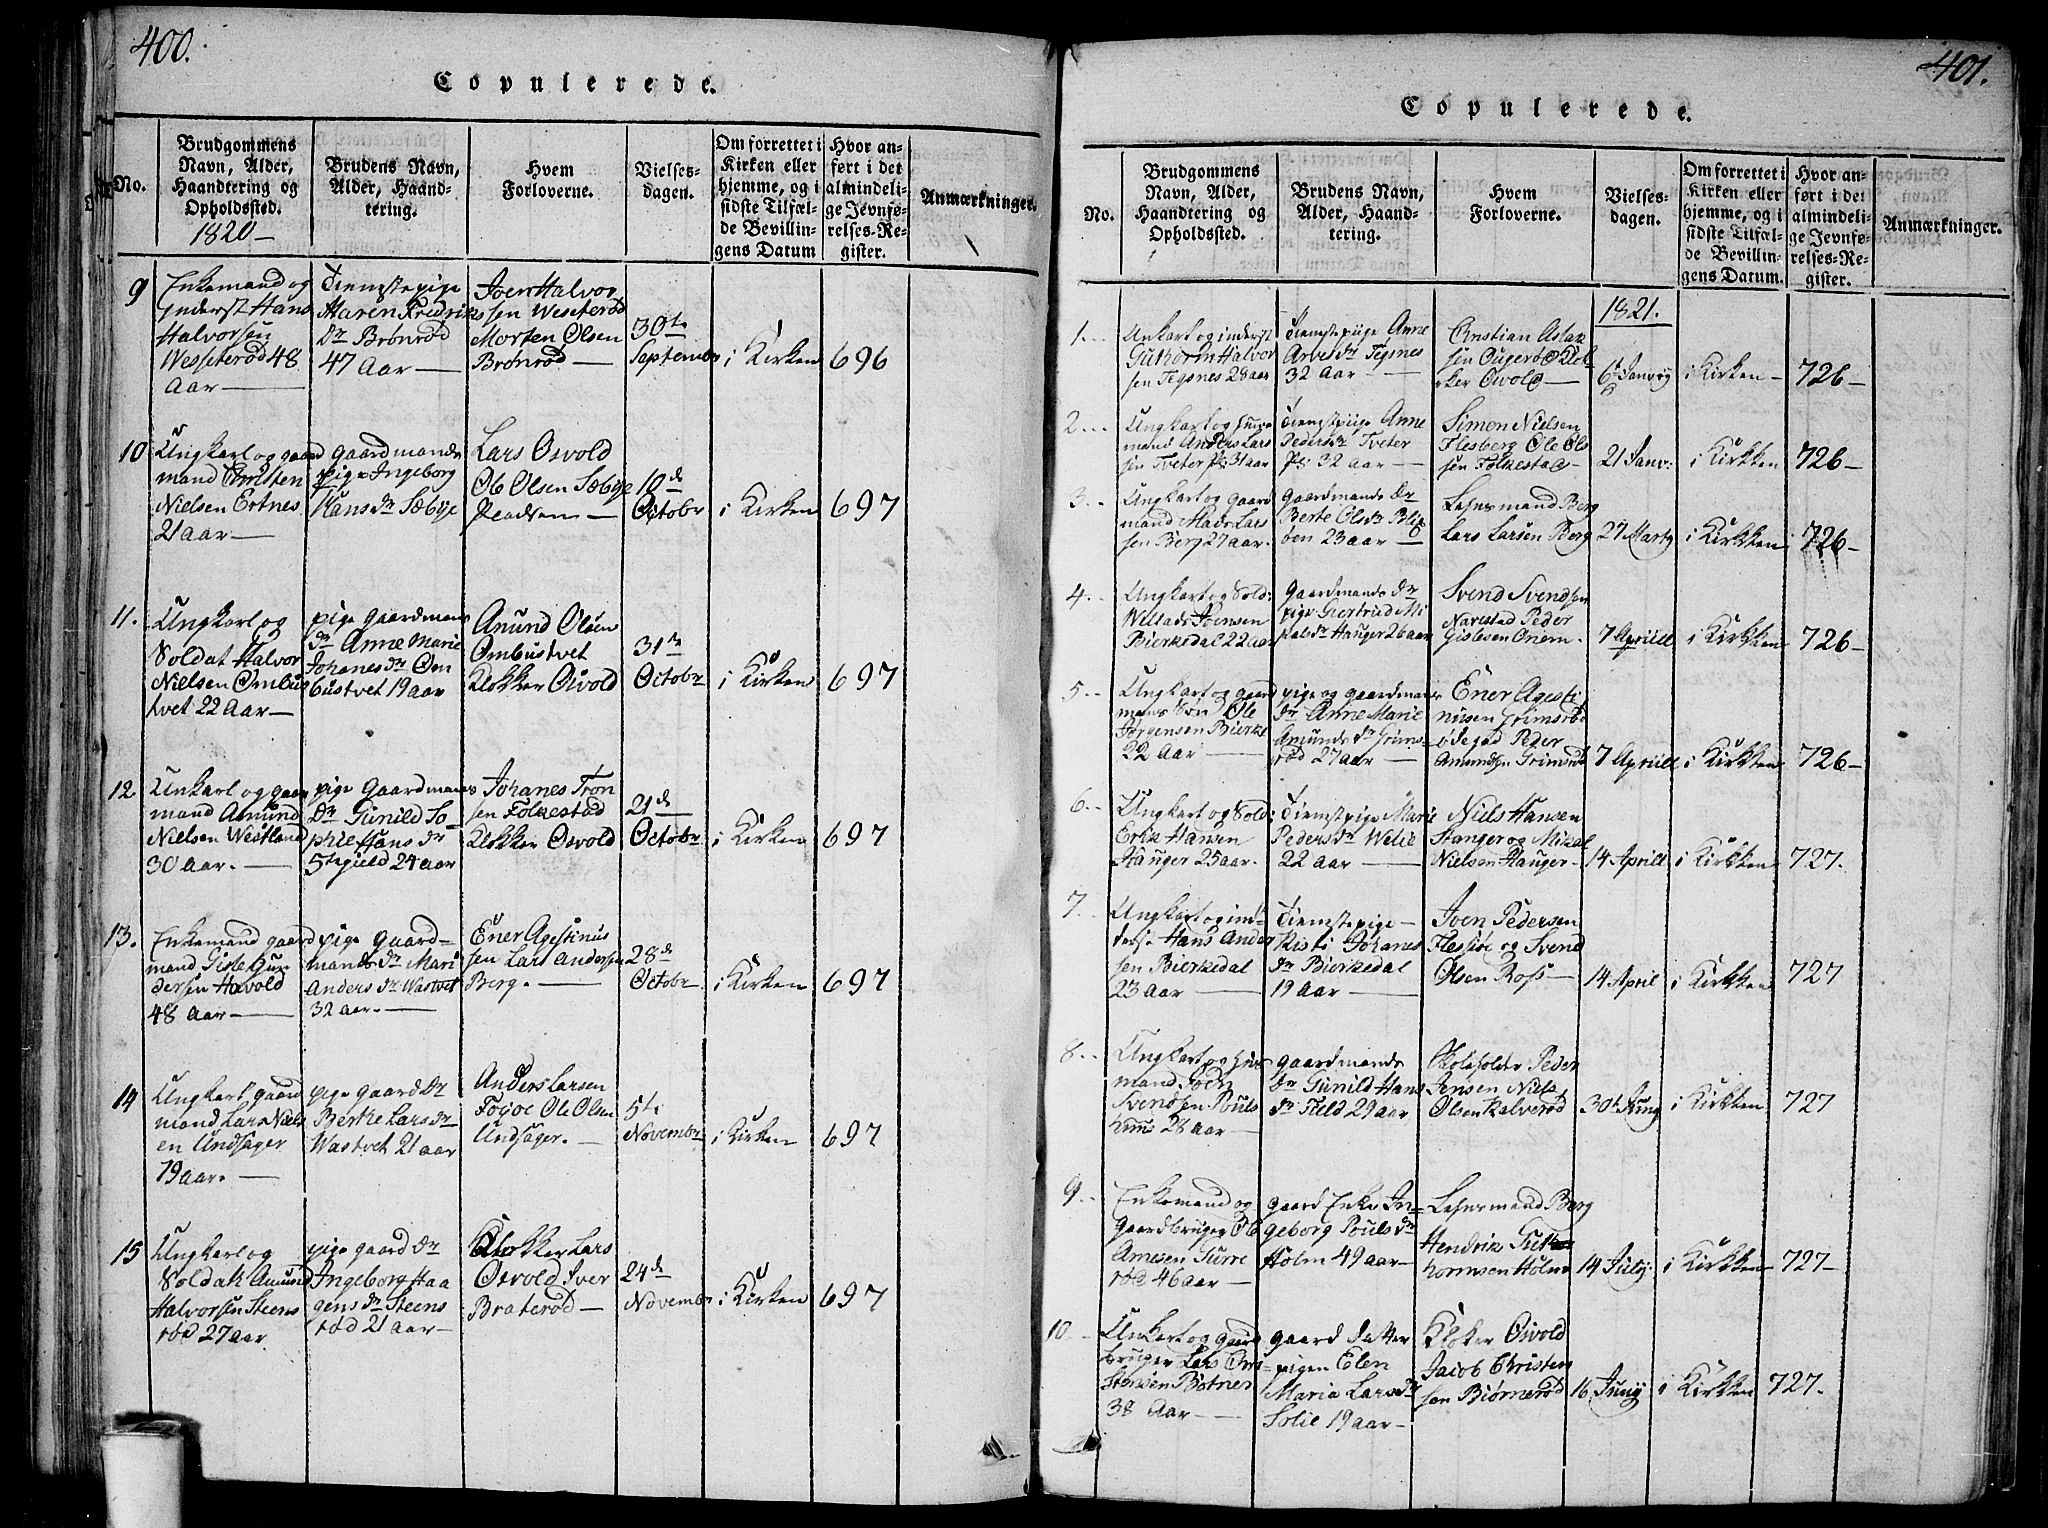 400.
Copulerede.
No.
Brudgommens
Navn, Alder,
Haandtering og
Opholdssted.
1820
Brudens Navn,
Alder, Haand-
tering.
Hvem
Forloverne.
Vielses-
dagen.
Om forrettet i
Kirken eller
hjemme, og i
sidste Tilfæl-
de Bevillin-
gens Datum
Hvor an-
ført i det
almindeli-
ge Jevnfø-
relses-Re-
gister.
Anmærkninger.
9
Enkemand og
Inderst Hans
Halvorsen
Wesseterød 48
Aar
Tienistepige
Maren Fredriks
Dr Brønrød
47 Aar
Joen Halvor
sen Weseterød
Morten Olsen
Brønrød
30te
September
i Kirken
696
10
Ungkarl og gaard
mand Cristen
Nielsen Ertnes
21 aar
gaardmands
pige Ingeborg
Hans dr Sæbye
Lars Osvold
Ole Olsen Sæbye
10de
Octobr
i Kirken
697
11.
Ungkarl og
Soldat Halvor
Nielsen Ombus
tvet 22 Aar
pige gaardmans
dr Anne Marie
Johanes dr Om
bustvet 19 aar
Anund Olsen
Ombustvet
Klokker Osvold
31te
Octobr
i Kirken
697
12
Unkarl og gaar
mand Amund
Nielsen Westland
30 aar.
pige gaardmans
Dr Gunild So
phie Hans dr
Stegield 24 aar
Johanes Tron
sen Folkestad
Klokker Osvold
21de
Octobr
i Kirken
697
13.
Enkemand gaard
mand Gisle Gun
dersen Havold
48 Aar
pige gaard-
mands dr Mari
Anders dr Wastvet
32 aar.
Ener Agestinus
sen Lars Andersen
Berg.
28de
Octobr
i Kirken
697
14
Ungkarl gaard
mand Lars Niels
en Undsager
19 aar.
pige gaard dr
Berthe Lars dr
Wastvet 21 aar
Anders Larsen
Fojoe Ole Olsen
Undsager.
5te
Novembr
i Kirken
697
15
Ungkarl og
Soldat Amund
Halvorsen Steens
rød 27 aar
pige gaard dr
Ingeborg Haa
gens dr Steens
rød 21 aar
Klokker Lars
Osvold Iver
Braterød
24de
Novembr
i Kirken
697
401.
Copulerede.
No.
Brudgommens
Navn, Alder,
Haandtering og
Opholdssted.
Brudens Navn,
Alder, Haand-
tering.
Hvem
Forloverne.
Vielses-
dagen.
Om forrettet i
Kirken eller
hjemme, og i
sidste Tilfæl-
de Bevillin-
gens Datum.
Hvor an-
ført i det
almindeli-
ge Jevnfø-
relses-Re-
gister.
Anmærkninger.
1821.
1.
Unkarl og inderst
Guthorm Halvor
sen Tegsnes 28 aar
Tienistepiige Anne
Arves dr Tegsnes
32 Aar
Cristian Aslak
sen Ougerød Klok
ker Osvold
6te Janvry
i Kirken
726
2
Ungkarl og Huus
mand Anders Lars
sen Tveter Ps: 31 aar
Tienistpiige Anne
Pedersdr Tveter
Ps: 32 aar
Simon Nielsen
Flesberg Ole Ols
sen Folkestad
21 Janv:
i Kirkken
726
3
Ungkarl og gaard
mand Mads Lars
sen Berg 27 aar.
gaardmands dr
Berte Olsdr Blix
ben 23 aar
Lehnsmand Berg
Lars Larsen Berg
27 Marty
i Kirkken
726
4.
Ungkarl og Sold:
Willads Joensen
Bierkedal 22 aar
gaardmands dr
pige Giertrud Mi
kals dr Hauger 26 aar
Svend Svendsen
Narestad Peder
Gislesen Oriem
7 Apriill
i Kirkken
726
5
Ungkarl og gaard
mans Søn Ole
Jørgensen Bierke
22 Aar
pige og gaardmans
dr Anne Marie
Amunds dr Grims-
rød 27 aar
Ener Agesti
nusen Grimsrød
ødegad Peder
Amundsen Grimsrød
7 Apriill
i Kirkken
726
6
Ungkarl og Sold:
Erik Hansen
Hauger 25 aar.
Tienistpige Marie
Peders dr Welie
22 aar
Niels Hansen
Stanger og Mikal
Nielsen Hauger
14 Apriill
i Kirkken
727.
7.
Ungkarl og ind-
erst Hans Ander
sen Bierkedal
23 Aar
Tienistepige
Kisti Johanes
dr Bierkedal
19 Aar
Joen Pedersen
Flessiøe og Svend
Olsen Ross
14 April
i Kirkken
727
8
Ungkarl og Huus
mand Joen
Svendsen Pouls
28 aar
gaardmands
dr Gunild Hans
dr Field 29 aar
Skoleholder Peder
Jensen Niels
Olsen Kalverød
30te Juny
i Kirkken
727
9
Enkemand og
gaardbruger Ole
Amesen Surre
rød 46 aar
gaard Enke In-
geborg Pouls dr
Holm 49 aar
Lehnsmand Berg
Hendrik Guth
hormsen Holm
14 July
i Kirkken
727
10
Unkarl og gaard
bruger Lars Chri-
stensen Bøtner
38 Aar
gaard datter
pigen Elen
Maria Lars dr
Solie 19 aar
Kloker Osvold
Jacob Christen
sen Biørnerød
16 Juny
i Kirkken
727.